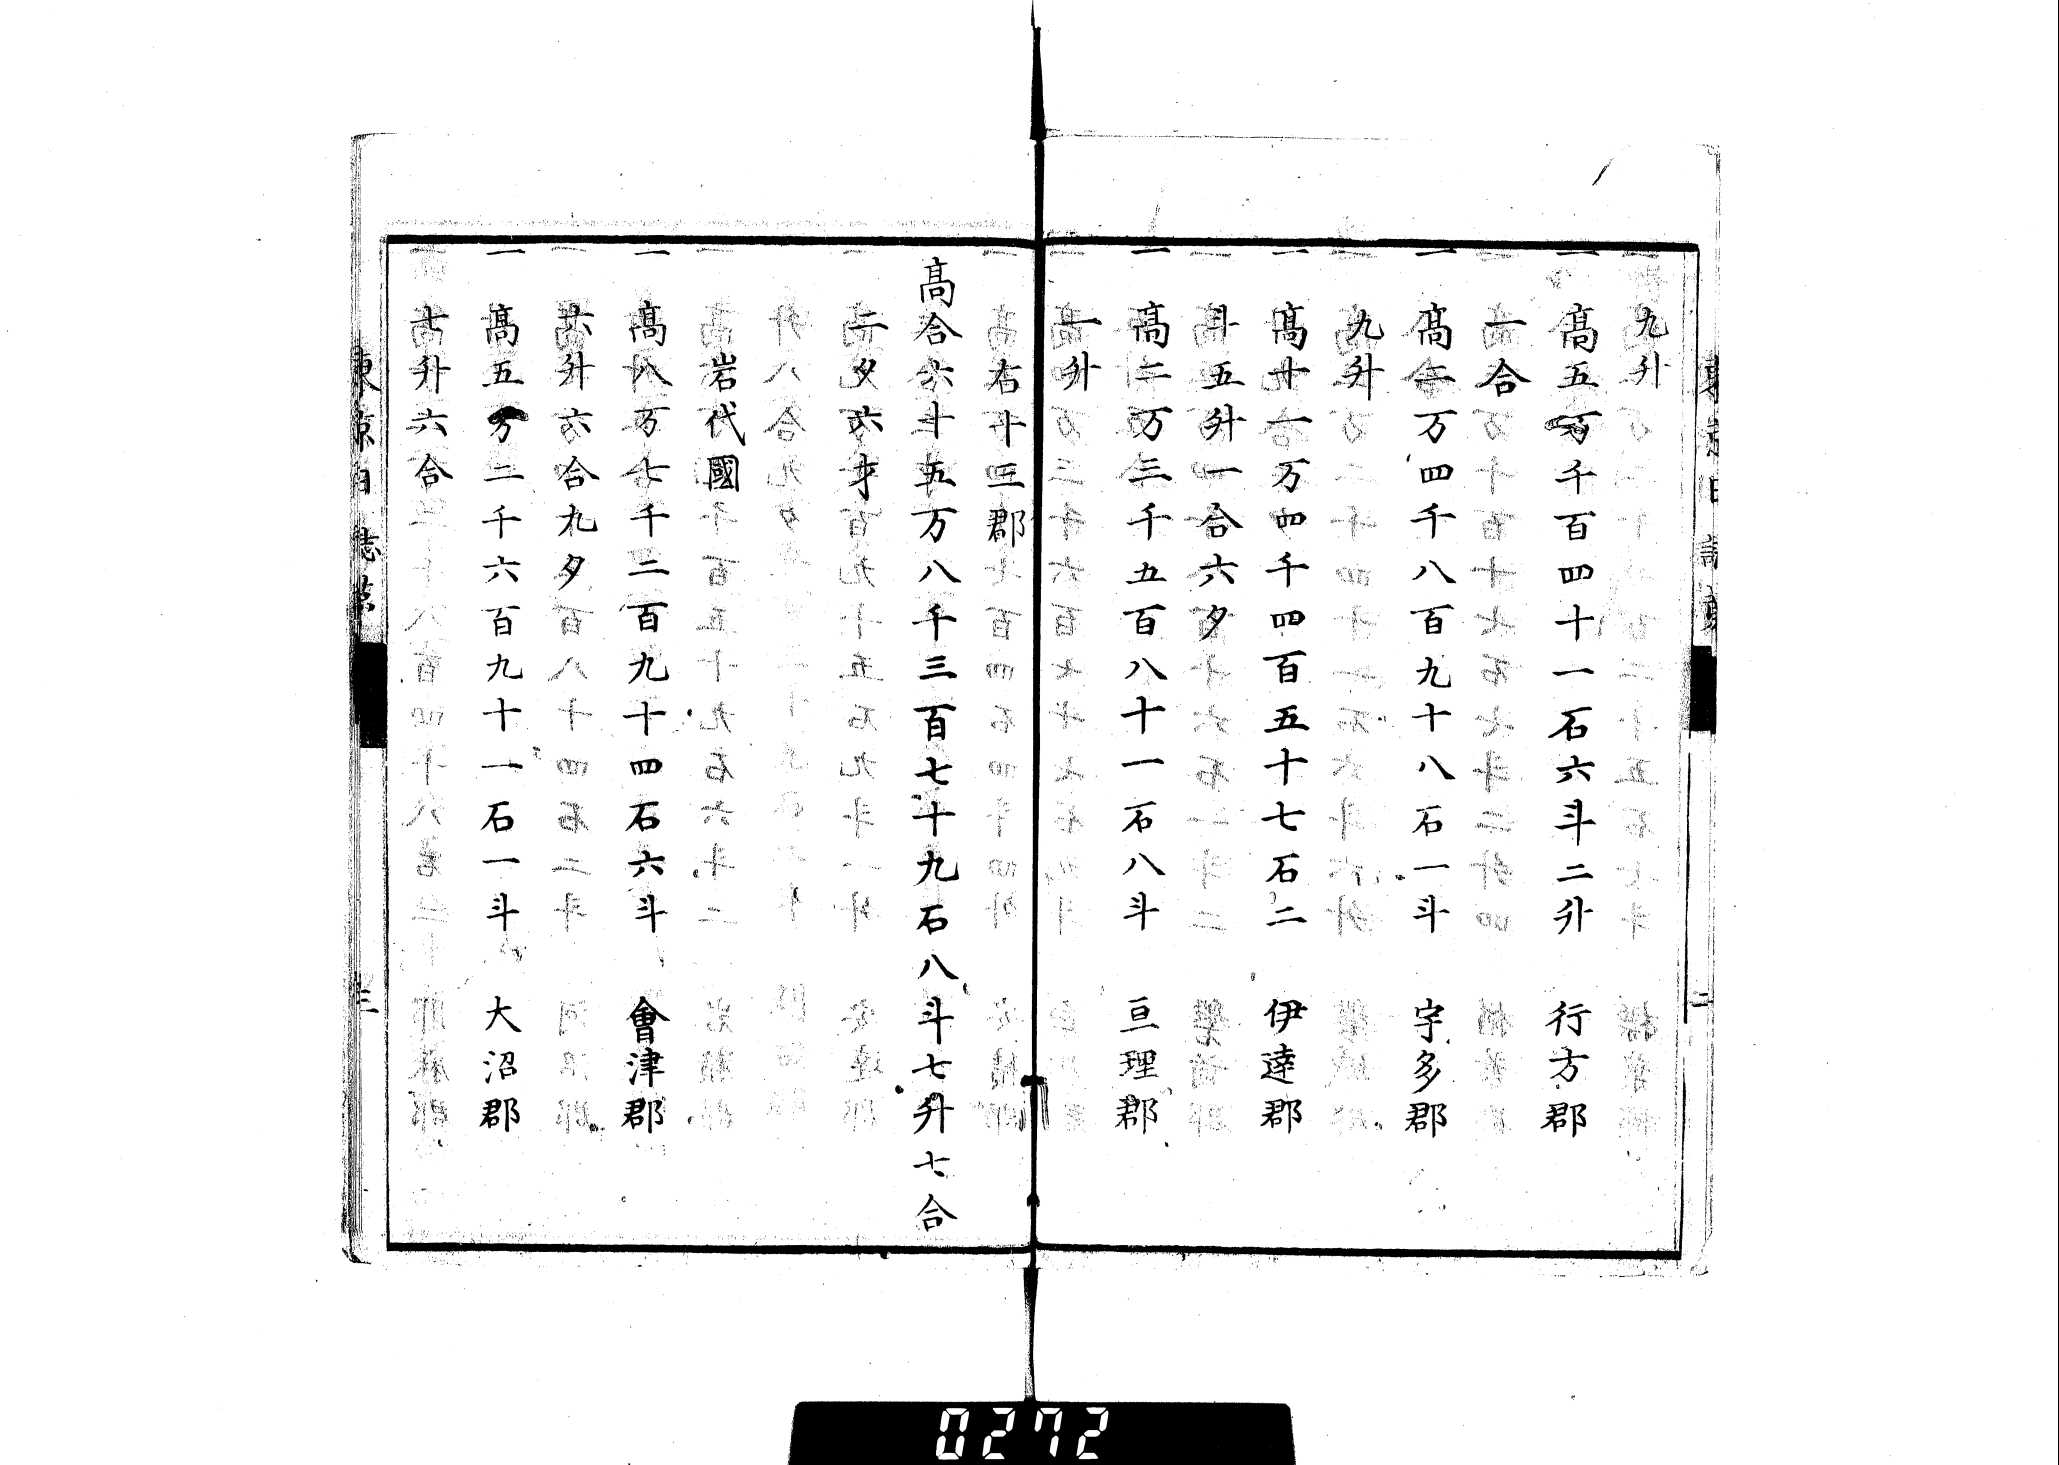 九升
一 高五万千百四十一石六斗二升 行方郡
一合
一 高二万四千八百九十八石一斗 宇多郡
九升
一 高廿一万四千四百五十七石二 伊達郡
斗五升一合六夕
一 高二万三千五百八十一石八斗 亘理郡
一升
右十三郡
高合六十五万八千三百七十九石八斗七升七合
二夕六才
岩代國
一 高八万七千二百九十四石六斗 會津郡
六升六合九夕
一 高五万二千六百九十一石一斗 大沼郡
七升六合
東京日誌
三
0272